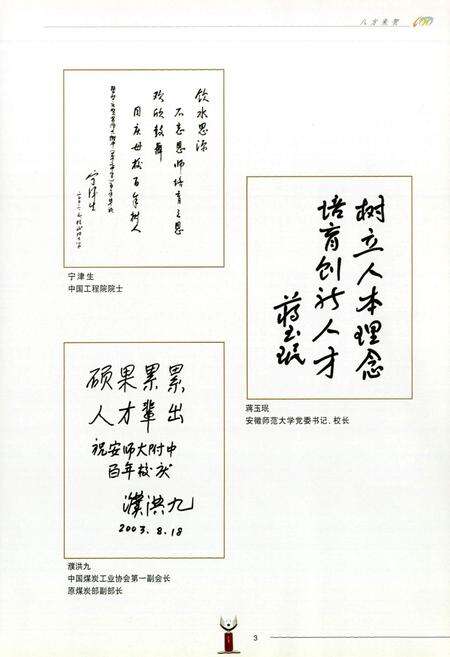 八方来贺
饮水思源
不忘恩师培育之恩
欢欣鼓舞
同庆母校百年树人
宁津生
宁津生
中国工程院院士
树立人本理念
培育创新人才
蒋玉珉
蒋玉珉
安徽师范大学党委书记、校长
硕果累累
人才辈出
祝安师大附中
百年校庆
濮洪九
2003.8.18
濮洪九
中国煤炭工业协会第一副会长
原煤炭部副部长
3